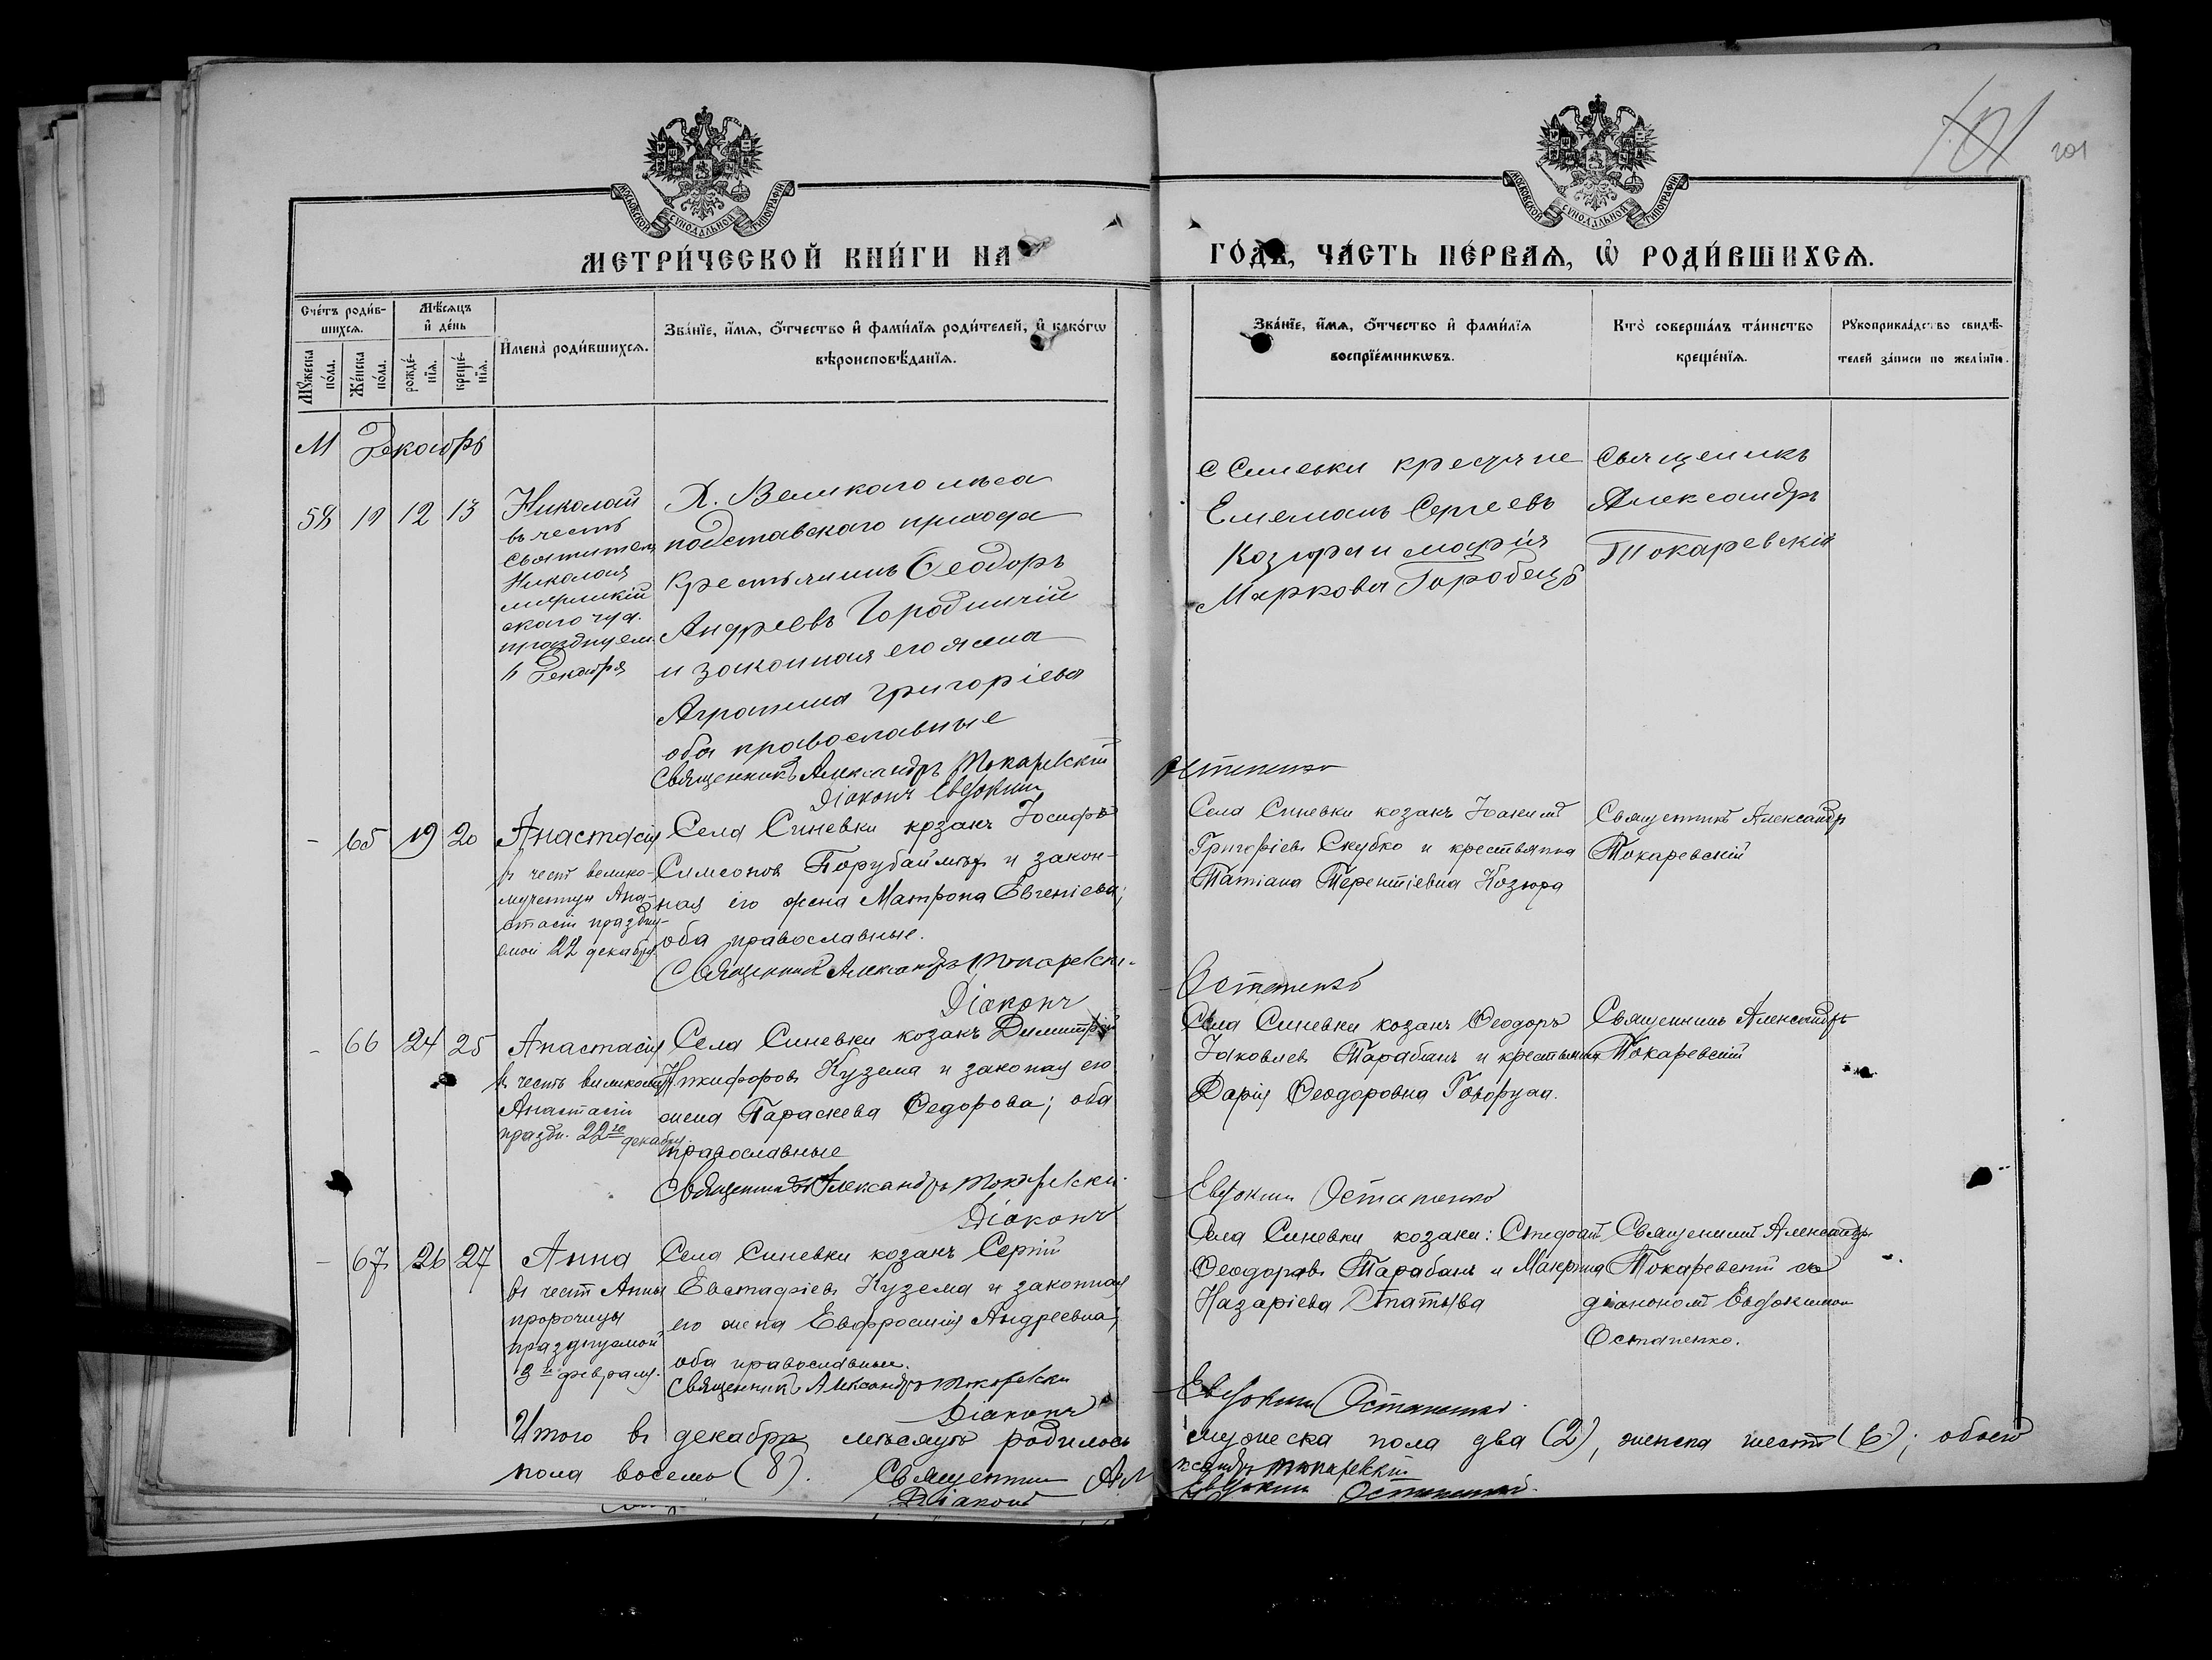 101
201
МОСКОВСКОЙ СѴНОДАЛЬНОЙ ТИПОГРАФІИ
МОСКОВСКОЙ СѴНОДАЛЬНОЙ ТИПОГРАФІИ
МЕТРИ́ЧЕСКОЙ КНИ́ГИ НА
ГО́ДЪ, ЧА́СТЬ ПЕ́РВАѦ, Ѡ҆ РОДИ́ВШИХСѦ.
Сче́тъ роди́в-
шихсѧ.
Мꙋ́жеска по́ла.
Же́нска по́ла.
Мѣ́сѧцъ
и҆ де́нь
рожде́-
нїѧ.
креще́-
нїѧ.
И҆мена̀ роди́вшихсѧ.
Зва́нїе, и҆́мѧ, ѻ҆́тчество и҆ фами́лїѧ роди́телей, и҆ како́гѡ
вѣроисповѣ́данїѧ.
Зва́нїе, и҆́мѧ, ѻ҆́тчество и҆ фами́лїѧ
воспрїе́мникѡвъ.
Кто̀ соверша́лъ та́инство
креще́нїѧ.
Рꙋкоприкла́дство свидѣ́-
телей за́писи по жела́нїю.
М Декабрь
58 12 13
Николай
въ честь
святителя
Николая
мирликій
скаго чуд.
празднуем.
6 Декабря
Х. Великаго лѣса
подставскаго прихода
крестьянинъ Ѳеодоръ
Андреевъ Городничій
и законная его жена
Агрипина Григоріева
оба православные
Священникъ Александръ Токаревскій
Діаконъ Евдокимъ
Остапенко
с Синевки крестьяне
Емельянъ Сергеевъ
Козюра и Марія
Маркова Горобець
Священикъ
Александръ
Токаревскій
- 65 19 20
Анастасія
въ честь велико-
мученицы Ана-
стасіи праздну-
емой 22 декабря
Села Синевки козакъ Іосифъ
Симеоновъ Порубаймѣхъ и закон-
ная его жена Матрона Евгеніева;
оба православные.
Священникъ Александръ Токаревскій
Діаконъ
Остапенко
Села Синевки козакъ Іоакимъ
Григоріевъ Скубко и крестьянка
Татіана Терентіевна Козюра
Священникъ Александръ
Токаревскій
- 66 24 25
Анастасія
въ честь великом.
Анастасіи
праздн. 22го декабря.
Села Синевки козакъ Димитрій
Никифоровъ Кузема и законая его
жена Параскева Ѳедорова; оба
православные
Священникъ Александръ Токаревскій
Діаконъ
Евдокимъ Остапенко
Села Синевки козакъ Ѳеодоръ
Іаковлевъ Тарабанъ и крестьянка
Дарія Ѳеодоровна Говоруха.
Священникъ Александръ
Токаревскій
- 67 26 27
Анна
въ честь Анны
пророчицы
празднуемой
3го февраля.
Села Синевки козакъ Сергій
Евстафіевъ Кузема и законная
его жена Евфросинія Андреевна;
оба православные.
Священникъ Александръ Токаревскій
Діаконъ
Евдокимъ Остапенко.
Села Синевки козаки: Стефанъ
Ѳеодоровъ Тарабанъ и Макрина
Назаріева
Священникъ Александръ
Токаревскій съ
діакономъ Евдокимом
Остапенко.
Итого въ декабрѣ мѣсяцѣ родилось мужеска пола два (2), женска шесть (6); обоего
пола восемь (8). Священникъ Александръ Токаревскій
Діаконъ Евдокимъ Остапенко.